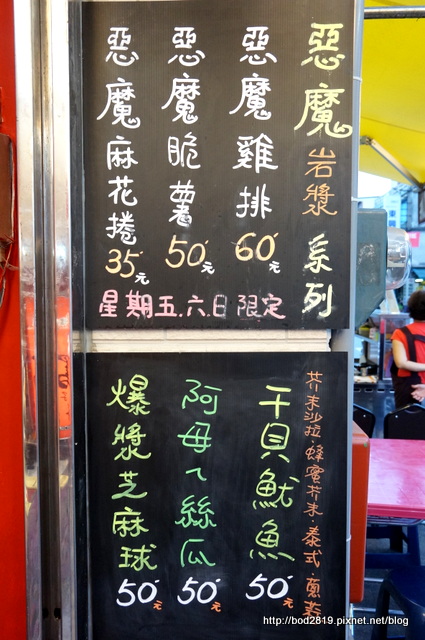 惡魔岩漿系列
惡魔雞排60元
惡魔脆薯50元
惡魔麻花捲35元
星期五.六.日限定
芥末沙拉.蜂蜜芥末.泰式.蔥蒜
干貝魷魚50元
阿母ㄟ絲瓜50元
爆漿芝麻球50元
http://bod2819.pixnet.net/blog